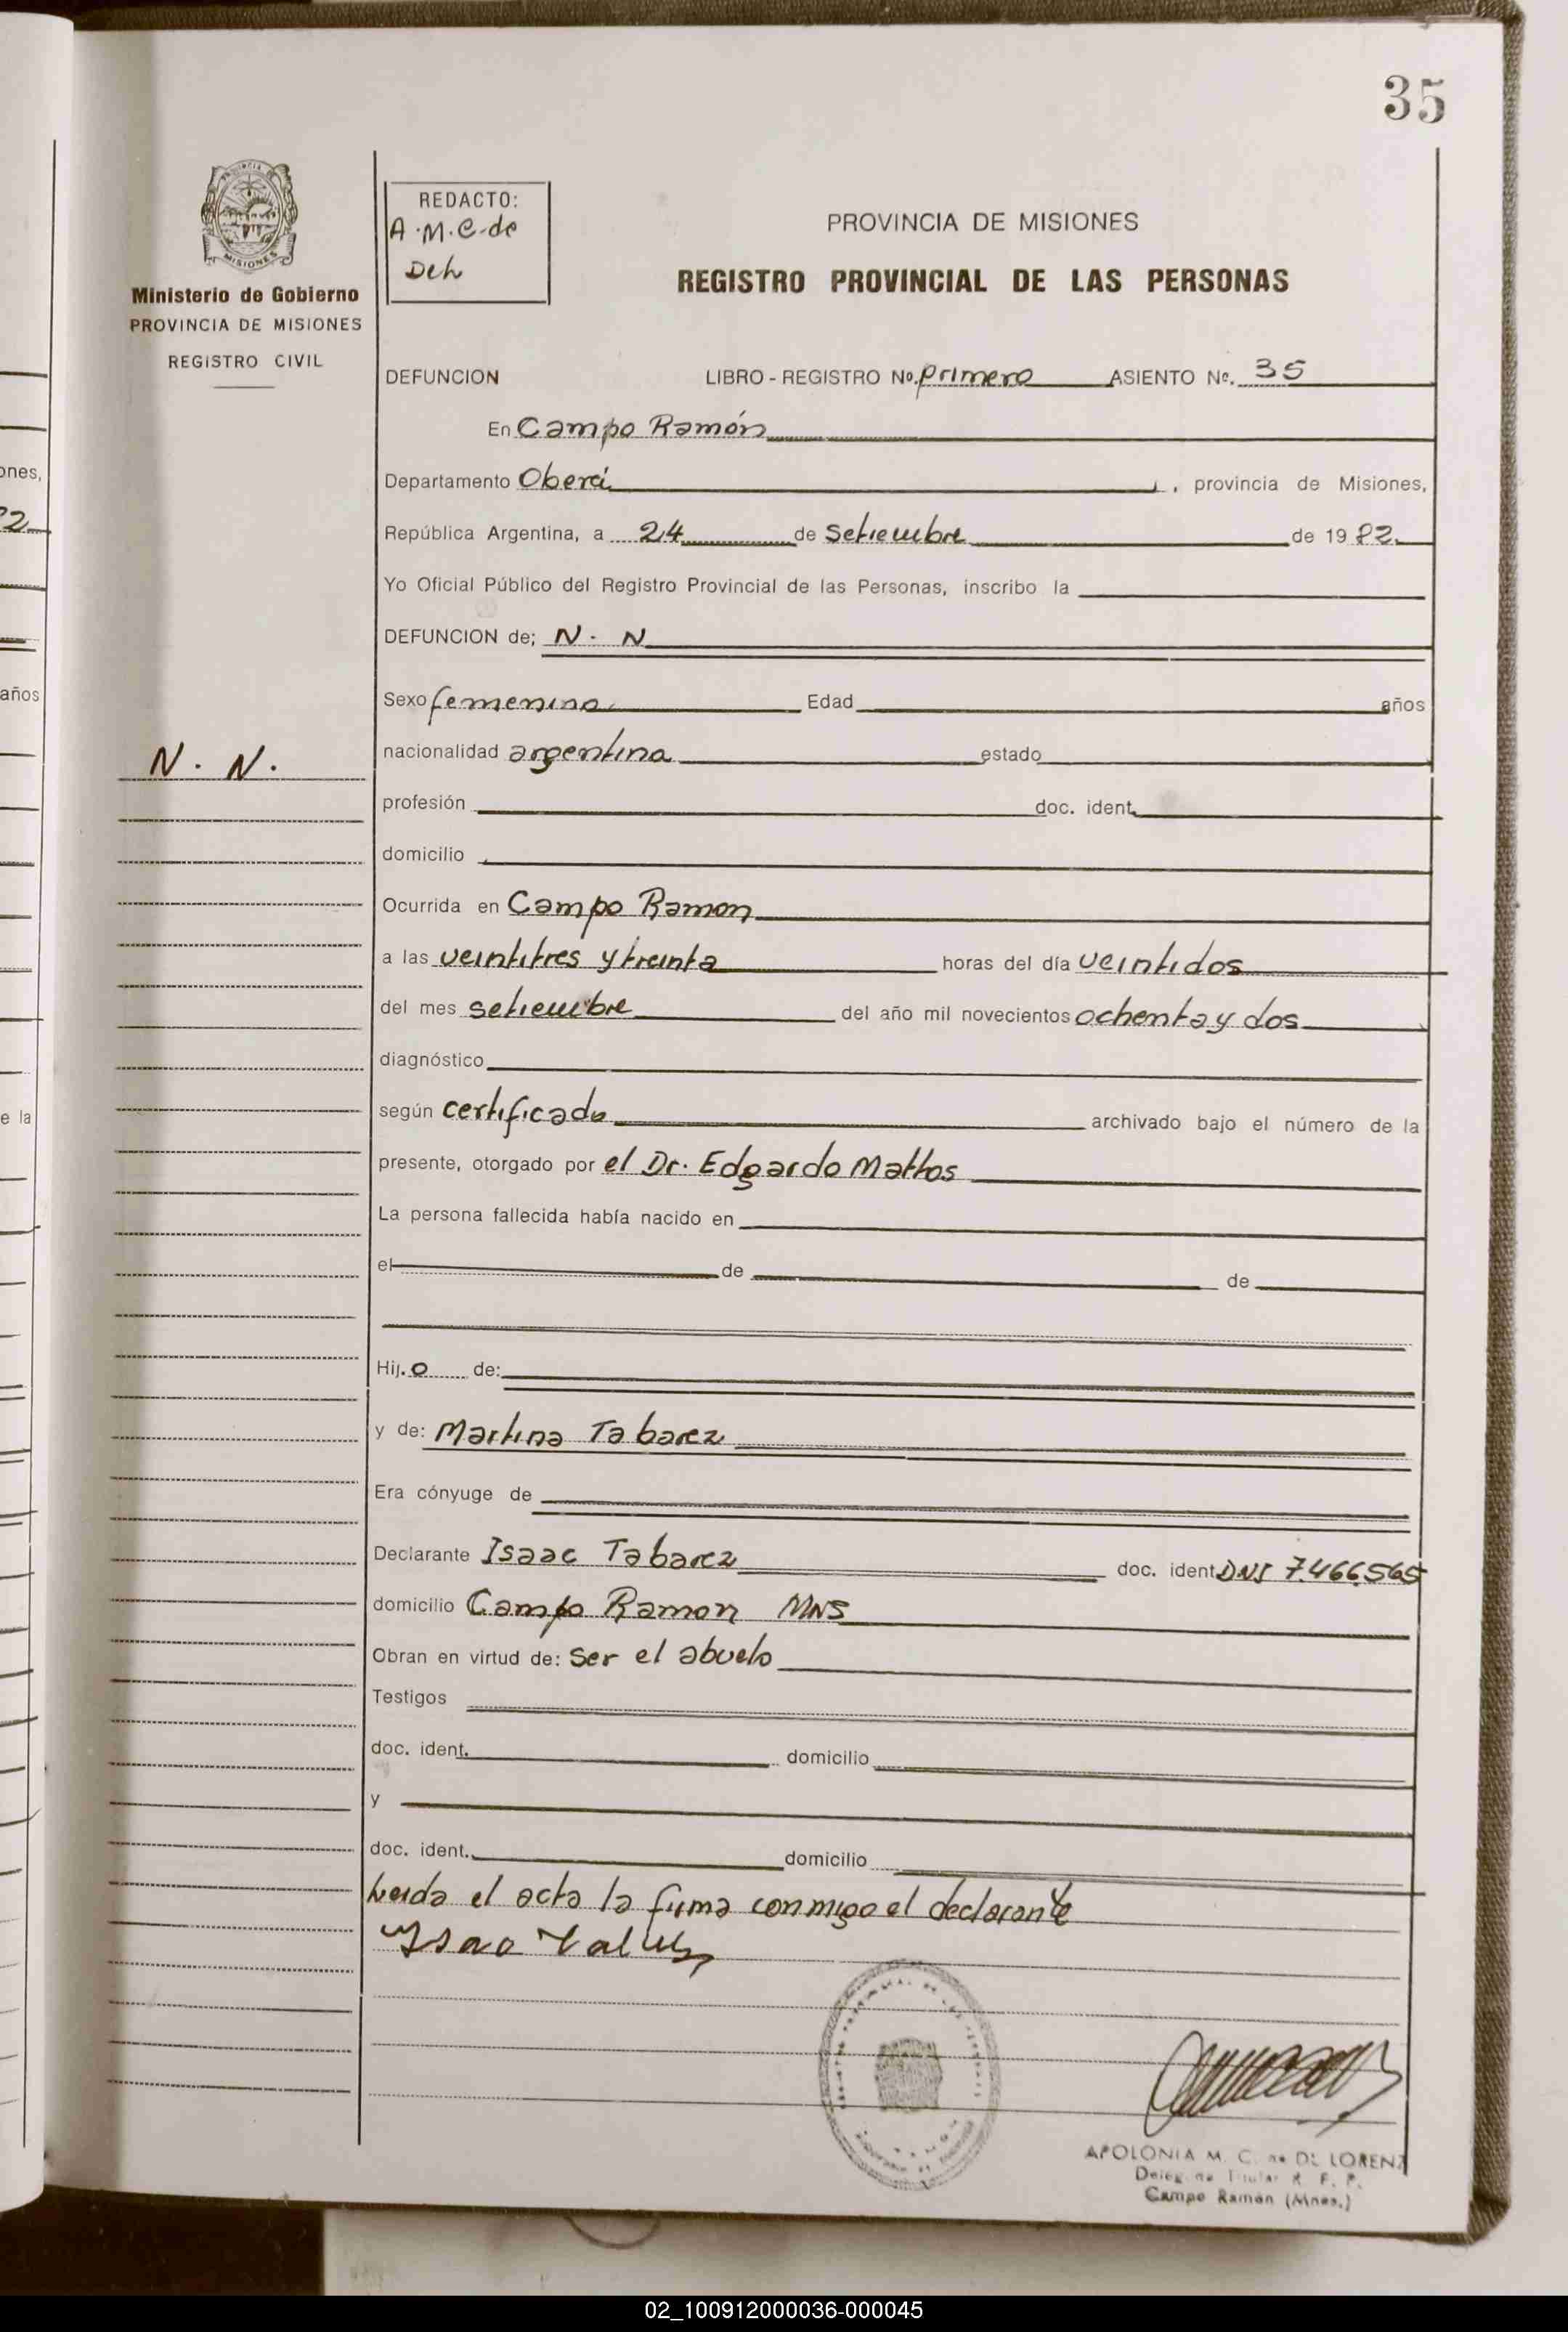 35
PROVINCIA DE
MISIONES
Ministerio de Gobierno
PROVINCIA DE MISIONES
REGISTRO CIVIL
REDACTO:
A.M.C. de
PROVINCIA DE MISIONES
REGISTRO PROVINCIAL DE LAS PERSONAS
DEFUNCION LIBRO - REGISTRO No. primero ASIENTO No. 35
En Campo Ramón
Departamento Oberá, provincia de Misiones,
República Argentina, a 24 de Setiembre de 1982
Yo Oficial Público del Registro Provincial de las Personas, inscribo la
DEFUNCION de; N. N
Sexo femenino Edad años
N. N.
nacionalidad argentina estado
profesión doc. ident.
domicilio
Ocurrida en Campo Ramon
a las veintitres y treinta horas del día veintidos
del mes setiembre del año mil novecientos ochenta y dos
diagnóstico
según certificado archivado bajo el número de la
presente, otorgado por el Dr. Edgardo Mattos
La persona fallecida había nacido en
el de de
Hij.o de:
y de: Martina Tabarez
Era cónyuge de
Declarante Isaac Tabarez doc. ident. DNI 7.466.565
domicilio Campo Ramon MNS
Obran en virtud de: ser el abuelo
Testigos
doc. ident. domicilio
y
doc. ident. domicilio
Leida el acta la firma conmigo el declarante
APOLONIA M. C. de DE LORENZ
Titular R. P. P.
Campo Ramón (Mnes.)
ones,
82
años
e la
02_100912000036-000045